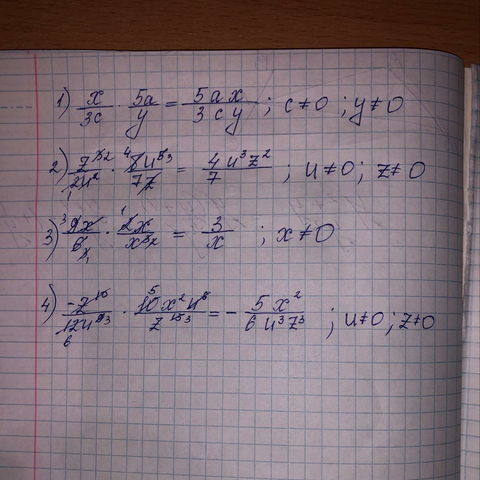 1) x/3c · 5a/y = 5ax/3cy ; c≠0 ; y≠0
2) z³²/2u² · ⁴8u⁵³/7z = 4u³z²/7 ; u≠0 ; z≠0
3) ³9x/6 · ¹2x/x³² = 3/x ; x≠0
4) -z¹⁰/12u⁹³ 6 · 5 10x²u⁶/z¹³³ = - 5x²/6u³z³ ; u≠0 ; z≠0